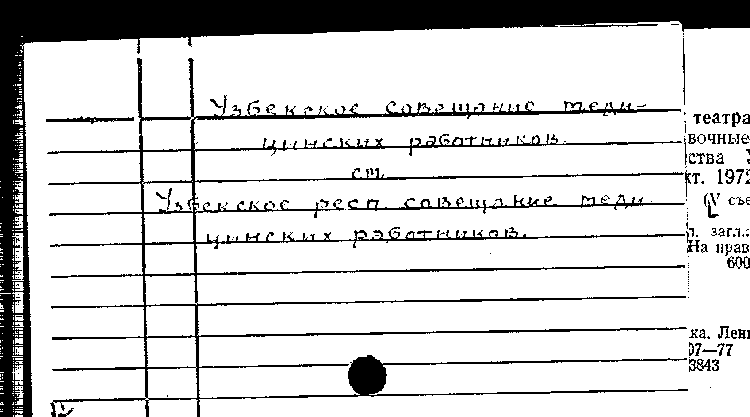 Узбекское совещание меди-
цинских работников.
см.
Узбекское респ. совещание меди-
цинских работников.
театра
вочные
ства У
кт. 1972
(V съе
л. загл.
На прав
600
ка. Лен
07—77
3843